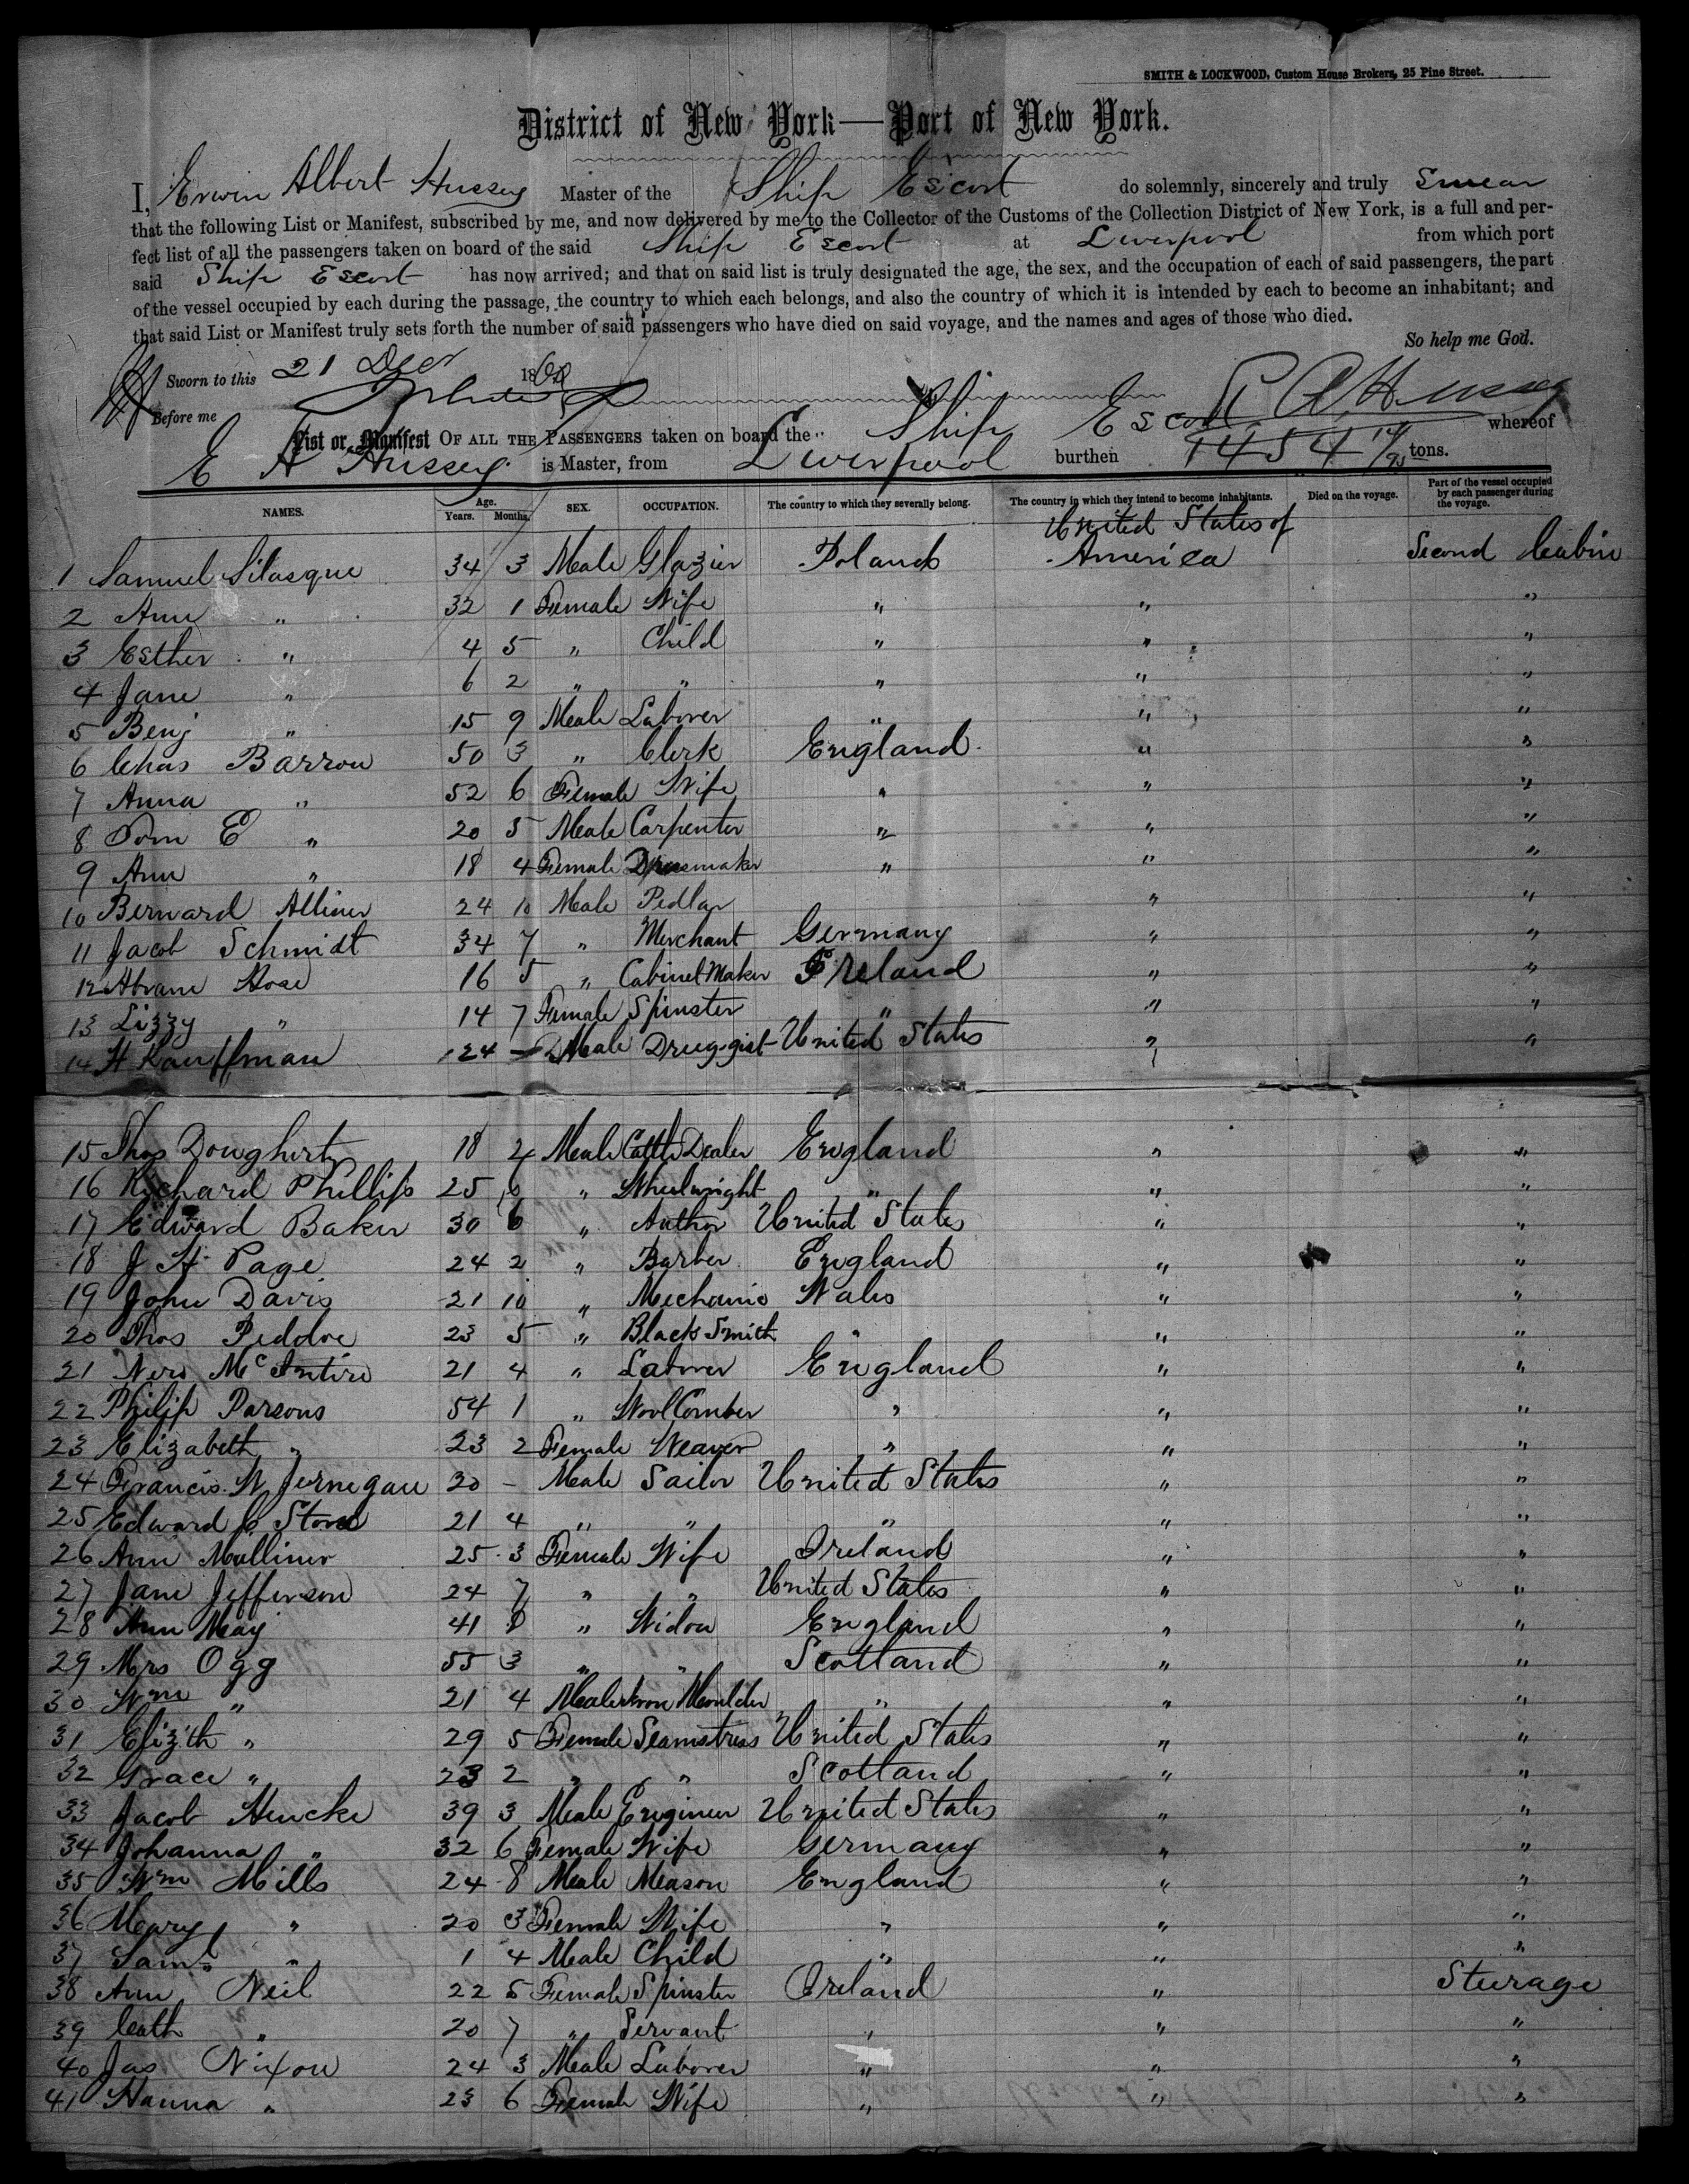 SMITH & LOCKWOOD, Custom House Brokers, 25 Pine Street.
District of New York—Port of New York.
I, Erwin Albert Hussey Master of the Ship Escort do solemnly, sincerely and truly Swear
that the following List or Manifest, subscribed by me, and now delivered by me to the Collector of the Customs of the Collection District of New York, is a full and per-
fect list of all the passengers taken on board of the said Ship Escort at Liverpool from which port
said Ship Escort has now arrived; and that on said list is truly designated the age, the sex, and the occupation of each of said passengers, the part
of the vessel occupied by each during the passage, the country to which each belongs, and also the country of which it is intended by each to become an inhabitant; and
that said List or Manifest truly sets forth the number of said passengers who have died on said voyage, and the names and ages of those who died.
So help me God.
Sworn to this 21 Decr 1860
Before me E A Hussey
List or Manifest OF ALL THE PASSENGERS taken on board the Ship Escort whereof
E A Hussey is Master, from Liverpool burthen 1454 14/95 tons.
NAMES. Age. Years. Months. SEX. OCCUPATION. The country to which they severally belong. The country in which they intend to become inhabitants. Died on the voyage. Part of the vessel occupied by each passenger during the voyage.
1 Samuel Silasque 34 3 Male Glazier Poland United States of America Second Cabin
2 Ann " 32 1 Female Wife " " "
3 Esther " 4 5 " Child " " "
4 Jane " 6 2 " " " " "
5 Benj " 15 9 Male Laborer " " "
6 Chas Barrow 50 3 " Clerk England " "
7 Anna " 52 6 Female Wife " " "
8 Tom E " 20 5 Male Carpenter " " "
9 Ann " 18 4 Female Dressmaker " " "
10 Bernard Alliner 24 10 Male Pedlar " "
11 Jacob Schmidt 34 7 " Merchant Germany " "
12 Abram Hose 16 5 " Cabinet Maker Ireland " "
13 Lizzy " 14 7 Female Spinster " " "
14 H Kauffman 24 - Male Druggist United States " "
15 Thos Dougherty 18 2 Male Cattle Dealer England " "
16 Richard Phillips 25 6 " Wheelwright " " "
17 Edward Baker 30 6 " Author United States " "
18 J H Page 24 2 " Barber England " "
19 John Davis 21 10 " Mechanic Wales " "
20 Thos Peddoe 23 5 " Black Smith " " "
21 McIntire 21 4 " Laborer England " "
22 Philip Parsons 54 1 " Wool Comber " " "
23 Elizabeth " 23 2 Female Weaver " " "
24 Francis W Jernegan 20 - Male Sailor United States " "
25 Edward C Stone 21 4 " " " " "
26 Ann Mulliner 25 3 Female Wife Ireland " "
27 Jane Jefferson 24 7 " " United States " "
28 Ann May 41 8 " Widow England " "
29 Mrs Ogg 55 3 " " Scotland " "
30 Wm " 21 4 Male Iron Moulder " " "
31 Elizth " 29 5 Female Seamstress United States " "
32 Grace " 23 2 " " Scotland " "
33 Jacob Hencke 39 3 Male Engineer United States " "
34 Johanna " 32 6 Female Wife Germany " "
35 Wm Mills 24 8 Male Mason England " "
36 Mary " 20 3 Female Wife " " "
37 Saml " 1 4 Male Child " " "
38 Ann Neil 22 5 Female Spinster Ireland " Steerage
39 Cath " 20 7 " Servant " " "
40 Jas Nixon 24 3 Male Laborer " " "
41 Hanna " 23 6 Female Wife " " "